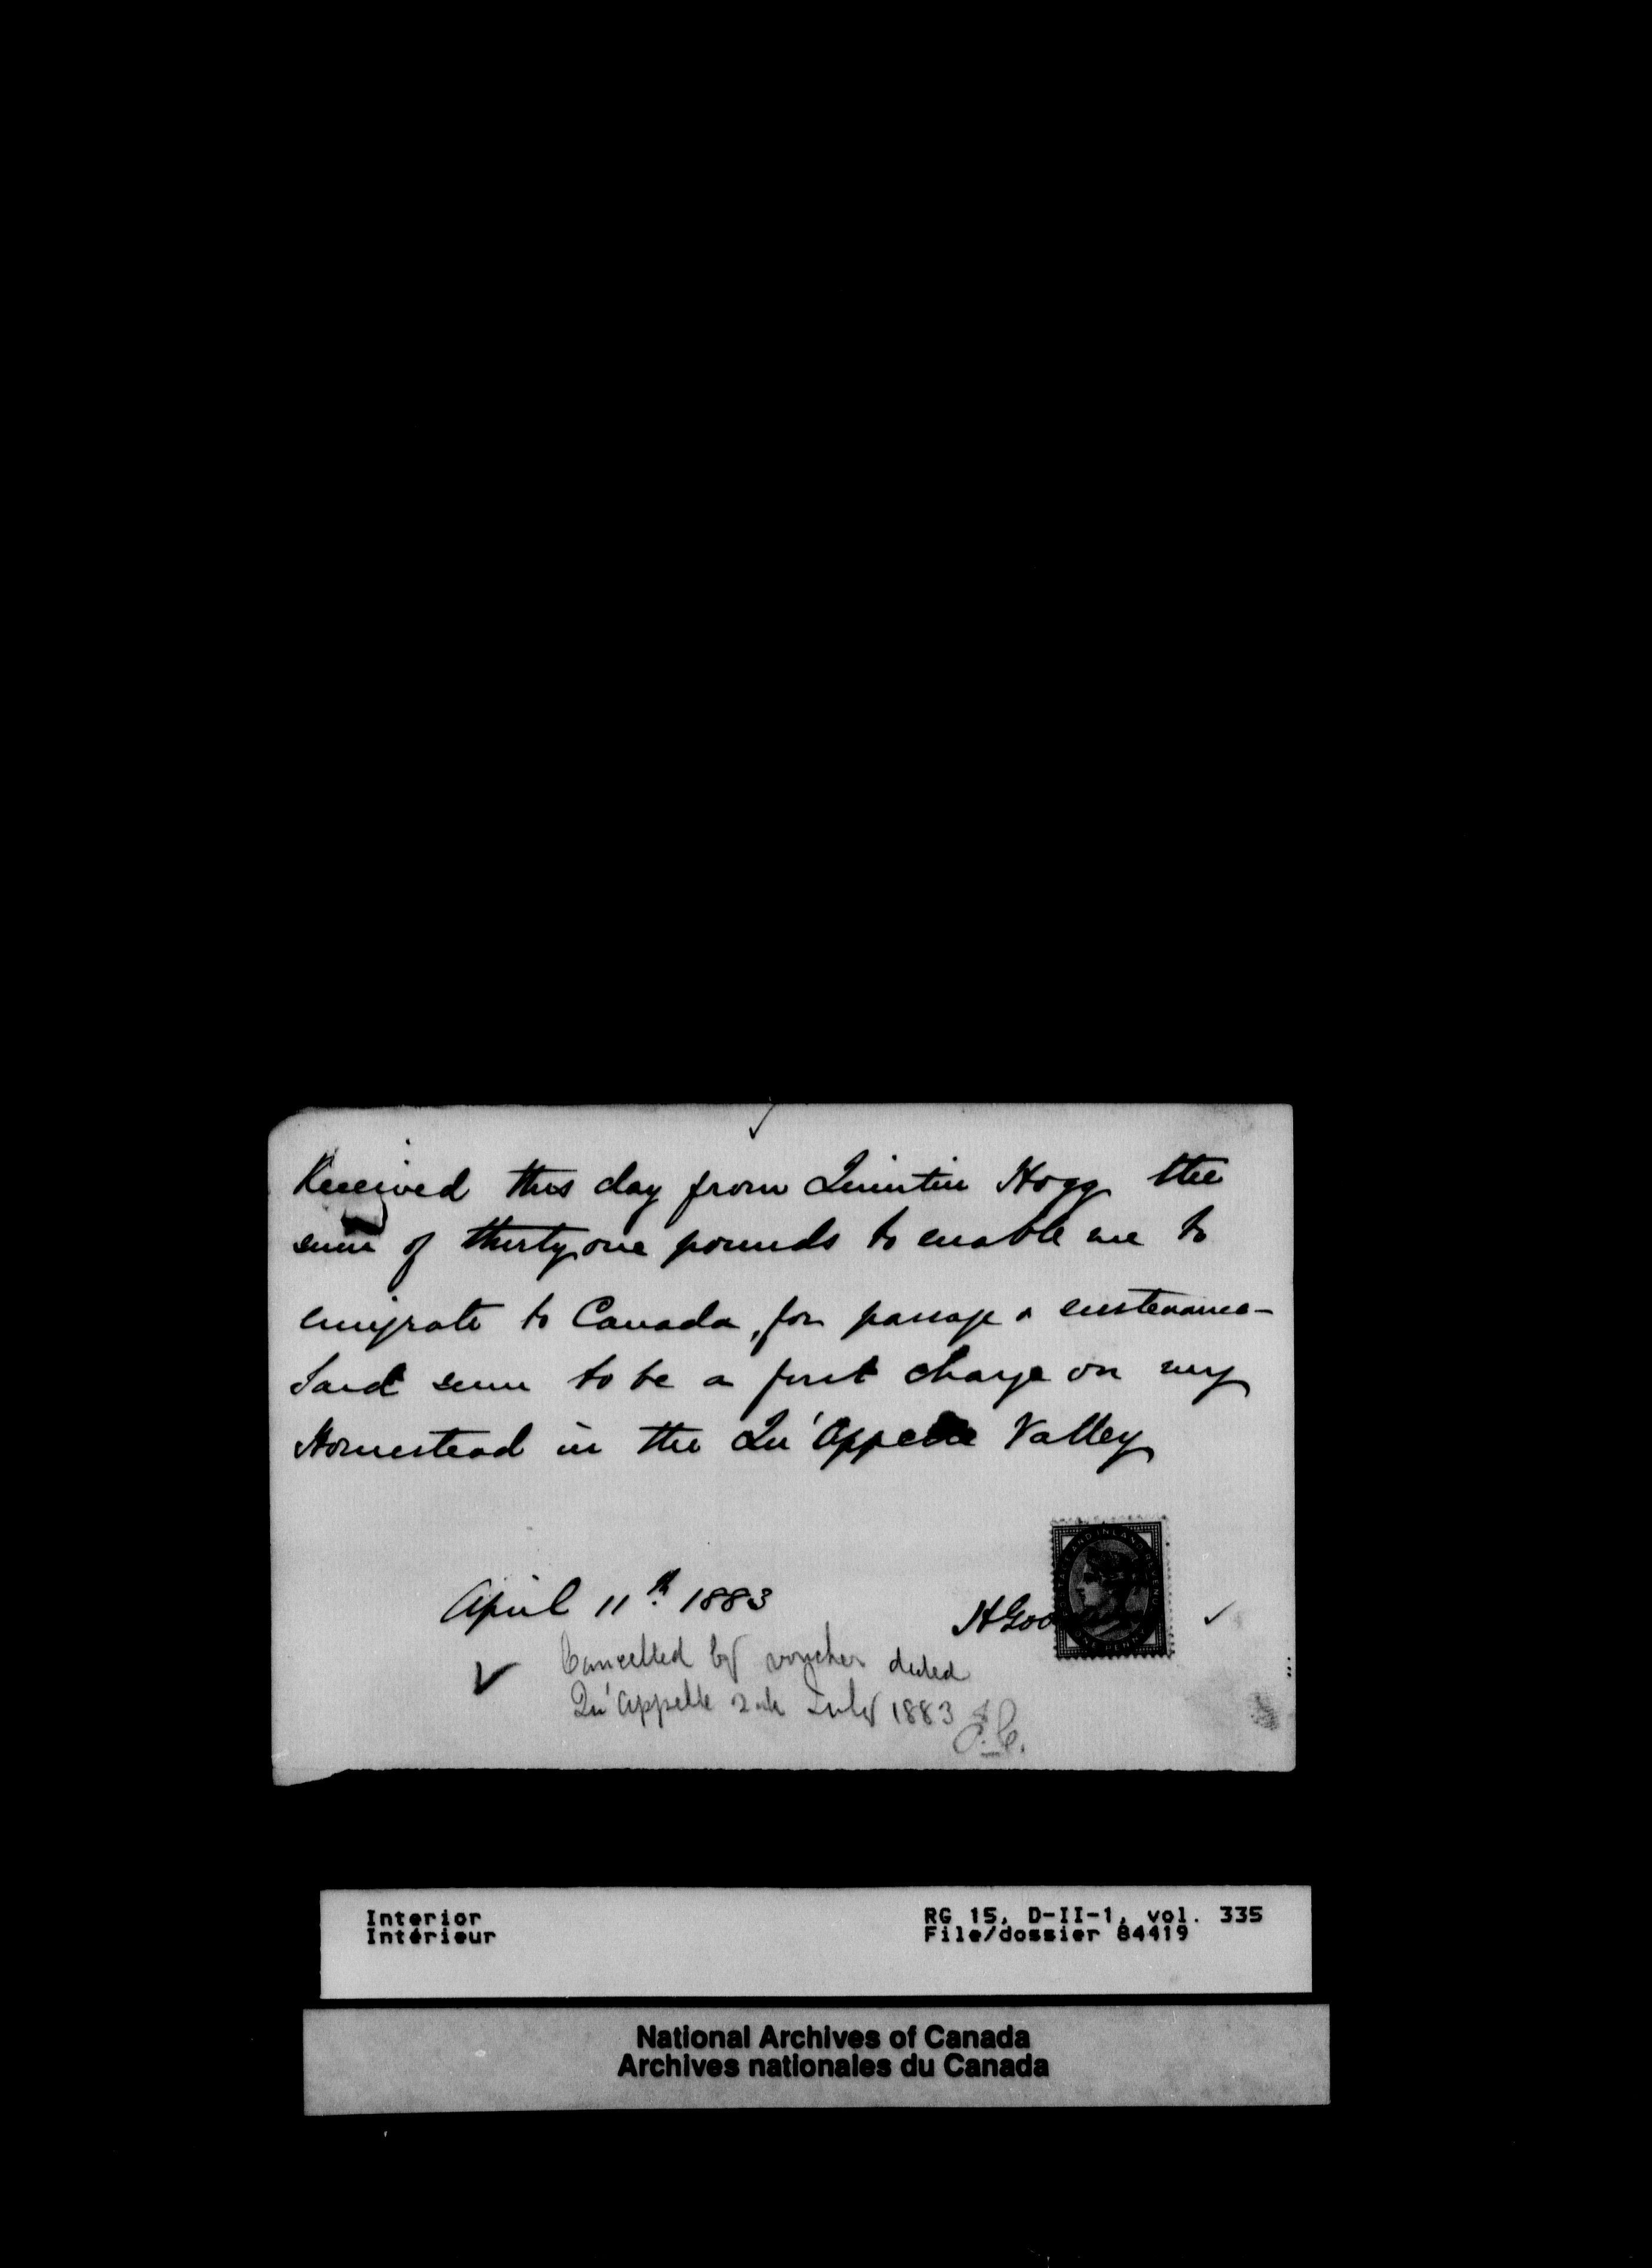 Received this day from Quintin Hogg the
sum of thirty one pounds to enable me to
emigrate to Canada, for passage & sustenance –
Said sum to be a first charge on my
Homestead in the Qu'Appelle Valley
April 11th 1883
H Goo
POSTAGE AND INLAND REVENUE
ONE PENNY
Cancelled by voucher dated
Qu'Appelle July 1883
Interior
Intérieur
RG 15, D-II-1, vol. 335
File/dossier 84419
National Archives of Canada
Archives nationales du Canada